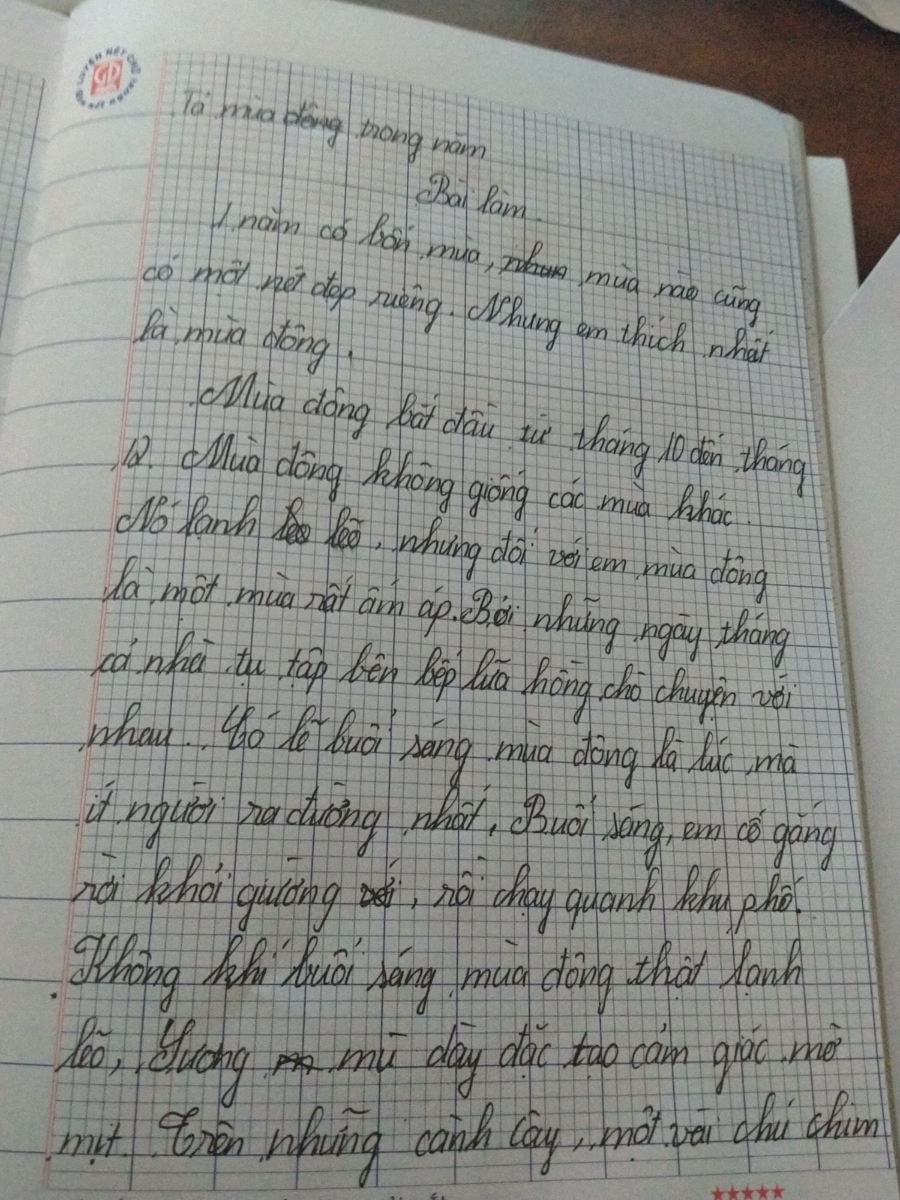 LUYỆN NÉT CHỮ
GD
Tả mùa đông trong năm
Bài làm
1 năm có bốn mùa, nhưn mùa nào cũng
có một nét đẹp ruêng. Nhưng em thích nhất
là mùa đông.
Mùa đông bắt đầu từ tháng 10 đến tháng
12. Mùa đông không giống các mùa khác.
Nó lạnh leo lẽo, nhưng đối với em mùa đông
là một mùa rất ấm áp. Bởi những ngày tháng
cả nhà tụ tập bên bếp lửa hồng chò chuyện với
nhau. Có lẽ buổi sáng mùa đông là lúc mà
ít người ra đường nhất, Buổi sáng, em cố gắng
rời khỏi giường với, rồi chạy quanh khu phố.
Không khí buổi sáng mùa đông thật lạnh
lẽo, Sương m mù dày đặc tạo cảm giác mờ
mịt. Trên những cành cây, một vài chú chim